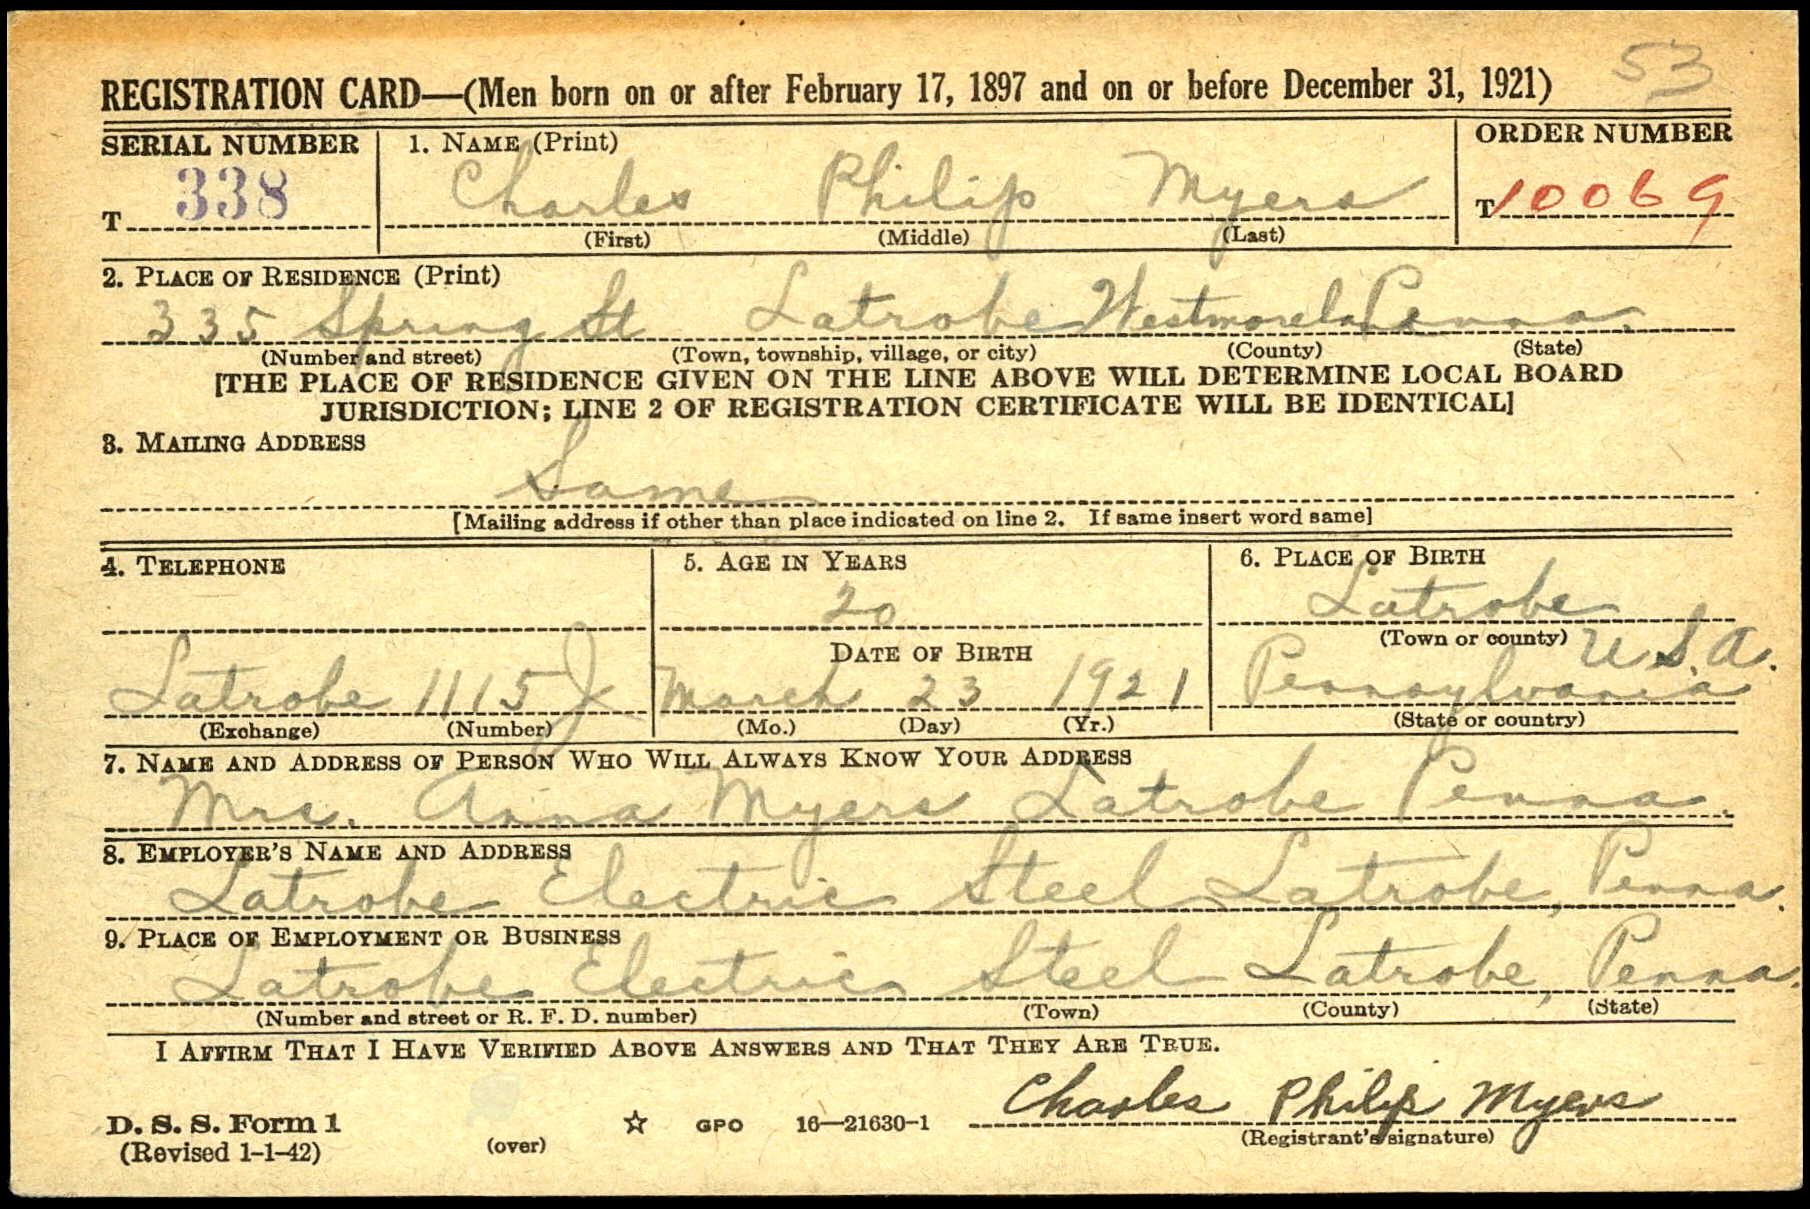 53
REGISTRATION CARD—(Men born on or after February 17, 1897 and on or before December 31, 1921)
SERIAL NUMBER 1. NAME (Print) ORDER NUMBER
T 338 Charles Philip Myers T 10069
(First) (Middle) (Last)
2. PLACE OF RESIDENCE (Print)
335 Spring St Latrobe Westmorelan Penna.
(Number and street) (Town, township, village, or city) (County) (State)
[THE PLACE OF RESIDENCE GIVEN ON THE LINE ABOVE WILL DETERMINE LOCAL BOARD
JURISDICTION; LINE 2 OF REGISTRATION CERTIFICATE WILL BE IDENTICAL]
3. MAILING ADDRESS
Same
[Mailing address if other than place indicated on line 2. If same insert word same]
4. TELEPHONE 5. AGE IN YEARS 6. PLACE OF BIRTH
20 Latrobe
DATE OF BIRTH (Town or county) U.S.A.
Latrobe 1115 J March 23 1921 Pennsylvania
(Exchange) (Number) (Mo.) (Day) (Yr.) (State or country)
7. NAME AND ADDRESS OF PERSON WHO WILL ALWAYS KNOW YOUR ADDRESS
Mrs. Anna Myers Latrobe Penna.
8. EMPLOYER'S NAME AND ADDRESS
Latrobe Electric Steel Latrobe, Penna.
9. PLACE OF EMPLOYMENT OR BUSINESS
Latrobe Electric Steel Latrobe, Penna.
(Number and street or R. F. D. number) (Town) (County) (State)
I AFFIRM THAT I HAVE VERIFIED ABOVE ANSWERS AND THAT THEY ARE TRUE.
Charles Philip Myers
D. S. S. Form 1 ☆ GPO 16—21630-1
(Revised 1-1-42) (over) (Registrant's signature)